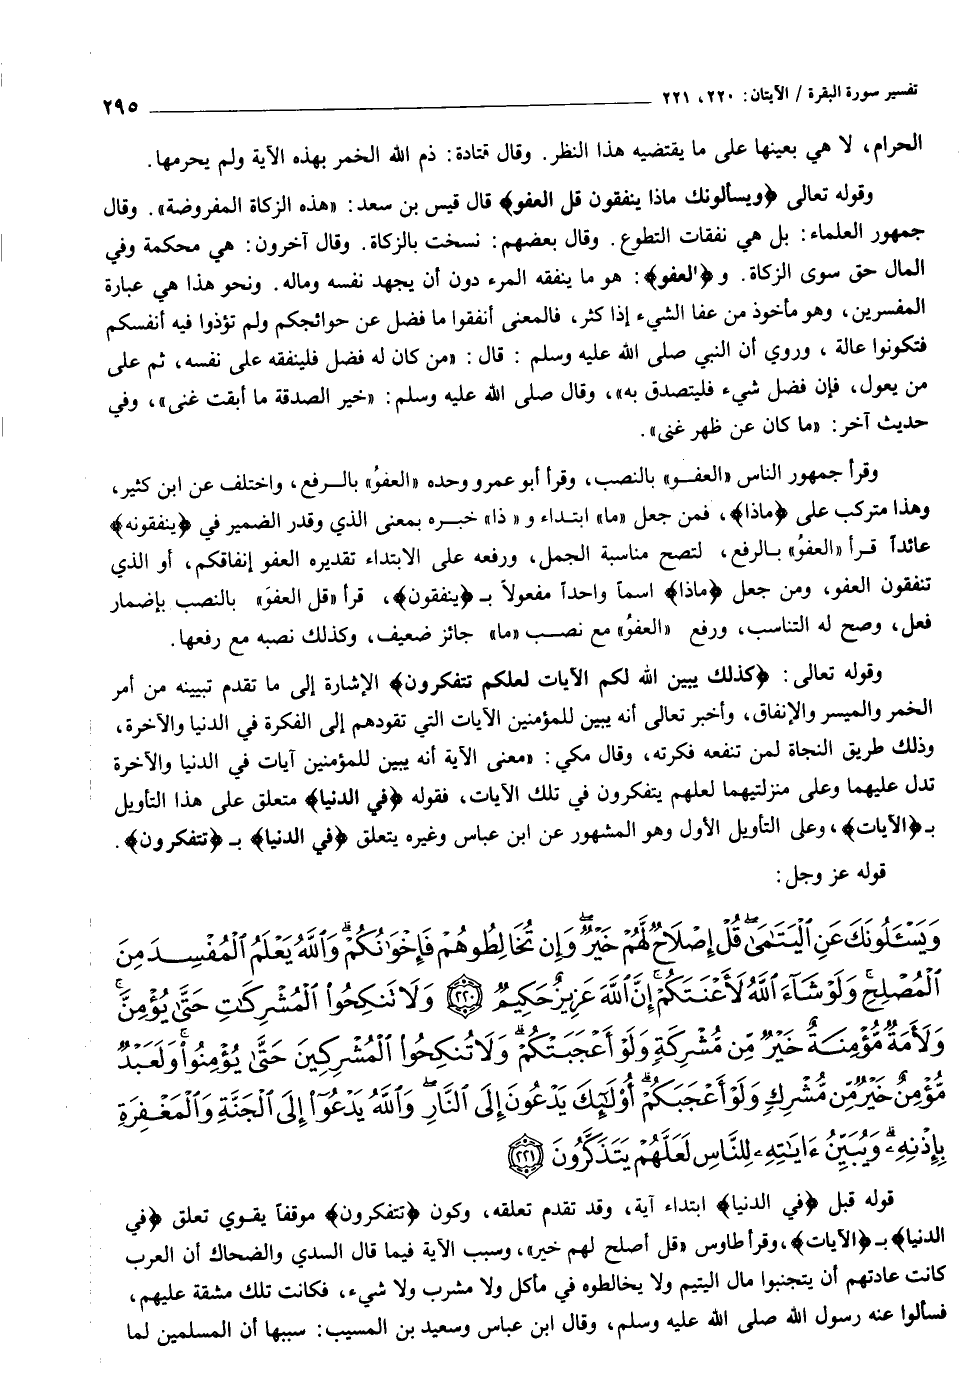 تفسير سورة البقرة / الآيتان: ٢٢٠، ٢٢١ ٢٩٥
الحرام، لا هي بعينها على ما يقتضيه هذا النظر. وقال قتادة: ذم الله الخمر بهذه الآية ولم يحرمها.
وقوله تعالى ﴿ويسألونك ماذا ينفقون قل العفو﴾ قال قيس بن سعد: «هذه الزكاة المفروضة». وقال
جمهور العلماء: بل هي نفقات التطوع. وقال بعضهم: نسخت بالزكاة. وقال آخرون: هي محكمة وفي
المال حق سوى الزكاة. و﴿العفو﴾: هو ما ينفقه المرء دون أن يجهد نفسه وماله. ونحو هذا هي عبارة
المفسرين، وهو مأخوذ من عفا الشيء إذا كثر، فالمعنى أنفقوا ما فضل عن حوائجكم ولم تؤذوا فيه أنفسكم
فتكونوا عالة ، وروي أن النبي صلى الله عليه وسلم : قال: «من كان له فضل فلينفقه على نفسه، ثم على
من يعول، فإن فضل شيء فليتصدق به»، وقال صلى الله عليه وسلم: «خير الصدقة ما أبقت غنى»، وفي
حديث آخر: «ما كان عن ظهر غنى».
وقرأ جمهور الناس «العفـو» بالنصب، وقرأ أبو عمرو وحده «العفوُ» بالـرفع، واختلف عن ابن كثير،
وهذا متركب على ﴿ماذا﴾، فمن جعل «ما» ابتـداء و« ذا» خبـره بمعنى الذي وقدر الضمير في ﴿ينفقونه﴾
عائداً قـرأ «العفوُ» بـالرفع، لتصح مناسبة الجمل، ورفعه على الابتداء تقديره العفو إنفاقكم، أو الذي
تنفقون العفو، ومن جعل ﴿ماذا﴾ اسماً واحداً مفعولاً بـ ﴿ينفقون﴾، قرأ «قل العفوَ» بالنصب بإضمار
فعل، وصح له التناسب، ورفع «العفوُ» مع نصـب «ما» جائز ضعيف، وكذلك نصبه مع رفعها.
وقوله تعالى: ﴿كذلك يبين الله لكم الآيات لعلكم تتفكرون﴾ الإشارة إلى ما تقدم تبيينه من أمر
الخمر والميسر والإنفاق، وأخبر تعالى أنه يبين للمؤمنين الآيات التي تقودهم إلى الفكرة في الدنيا والآخرة،
وذلك طريق النجاة لمن تنفعه فكرته، وقال مكي: «معنى الآية أنه يبين للمؤمنين آيات في الدنيا والآخرة
تدل عليهما وعلى منزلتيهما لعلهم يتفكرون في تلك الآيات، فقوله ﴿في الدنيا﴾ متعلق على هذا التأويل
بـ ﴿الآيات﴾، وعلى التأويل الأول وهو المشهور عن ابن عباس وغيره يتعلق ﴿في الدنيا﴾ بـ ﴿تتفكرون﴾.
قوله عز وجل:
وَيَسْـَٔلُونَكَ عَنِ ٱلْيَتَـٰمَىٰ ۖ قُلْ إِصْلَاحٌ لَّهُمْ خَيْرٌ ۖ وَإِن تُخَالِطُوهُمْ فَإِخْوَٰنُكُمْ ۚ وَٱللَّهُ يَعْلَمُ ٱلْمُفْسِدَ مِنَ
ٱلْمُصْلِحِ ۚ وَلَوْ شَآءَ ٱللَّهُ لَأَعْنَتَكُمْ ۚ إِنَّ ٱللَّهَ عَزِيزٌ حَكِيمٌ ﴿٢٢٠﴾ وَلَا تَنكِحُوا۟ ٱلْمُشْرِكَـٰتِ حَتَّىٰ يُؤْمِنَّ ۚ
وَلَأَمَةٌ مُّؤْمِنَةٌ خَيْرٌ مِّن مُّشْرِكَةٍ وَلَوْ أَعْجَبَتْكُمْ ۗ وَلَا تُنكِحُوا۟ ٱلْمُشْرِكِينَ حَتَّىٰ يُؤْمِنُوا۟ ۚ وَلَعَبْدٌ
مُّؤْمِنٌ خَيْرٌ مِّن مُّشْرِكٍ وَلَوْ أَعْجَبَكُمْ ۗ أُو۟لَـٰٓئِكَ يَدْعُونَ إِلَى ٱلنَّارِ ۖ وَٱللَّهُ يَدْعُوٓا۟ إِلَى ٱلْجَنَّةِ وَٱلْمَغْفِرَةِ
بِإِذْنِهِۦ ۖ وَيُبَيِّنُ ءَايَـٰتِهِۦ لِلنَّاسِ لَعَلَّهُمْ يَتَذَكَّرُونَ ﴿٢٢١﴾
قوله قبل ﴿في الدنيا﴾ ابتداء آية، وقد تقدم تعلقه، وكون ﴿تتفكرون﴾ موقفاً يقوي تعلق ﴿في
الدنيا﴾ بـ ﴿الآيات﴾، وقرأ طاوس «قل أصلح لهم خير»، وسبب الآية فيما قال السدي والضحاك أن العرب
كانت عادتهم أن يتجنبوا مال اليتيم ولا يخالطوه في مأكل ولا مشرب ولا شيء، فكانت تلك مشقة عليهم،
فسألوا عنه رسول الله صلى الله عليه وسلم، وقال ابن عباس وسعيد بن المسيب: سببها أن المسلمين لما